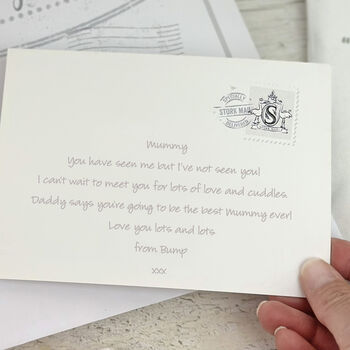 SPECIALLY
STORK MAIL
DELIVERED
S
Mummy
You have seen me but I've not seen you!
I can't wait to meet you for lots of love and cuddles.
Daddy says you're going to be the best Mummy ever!
Love you lots and lots
from Bump
xxx